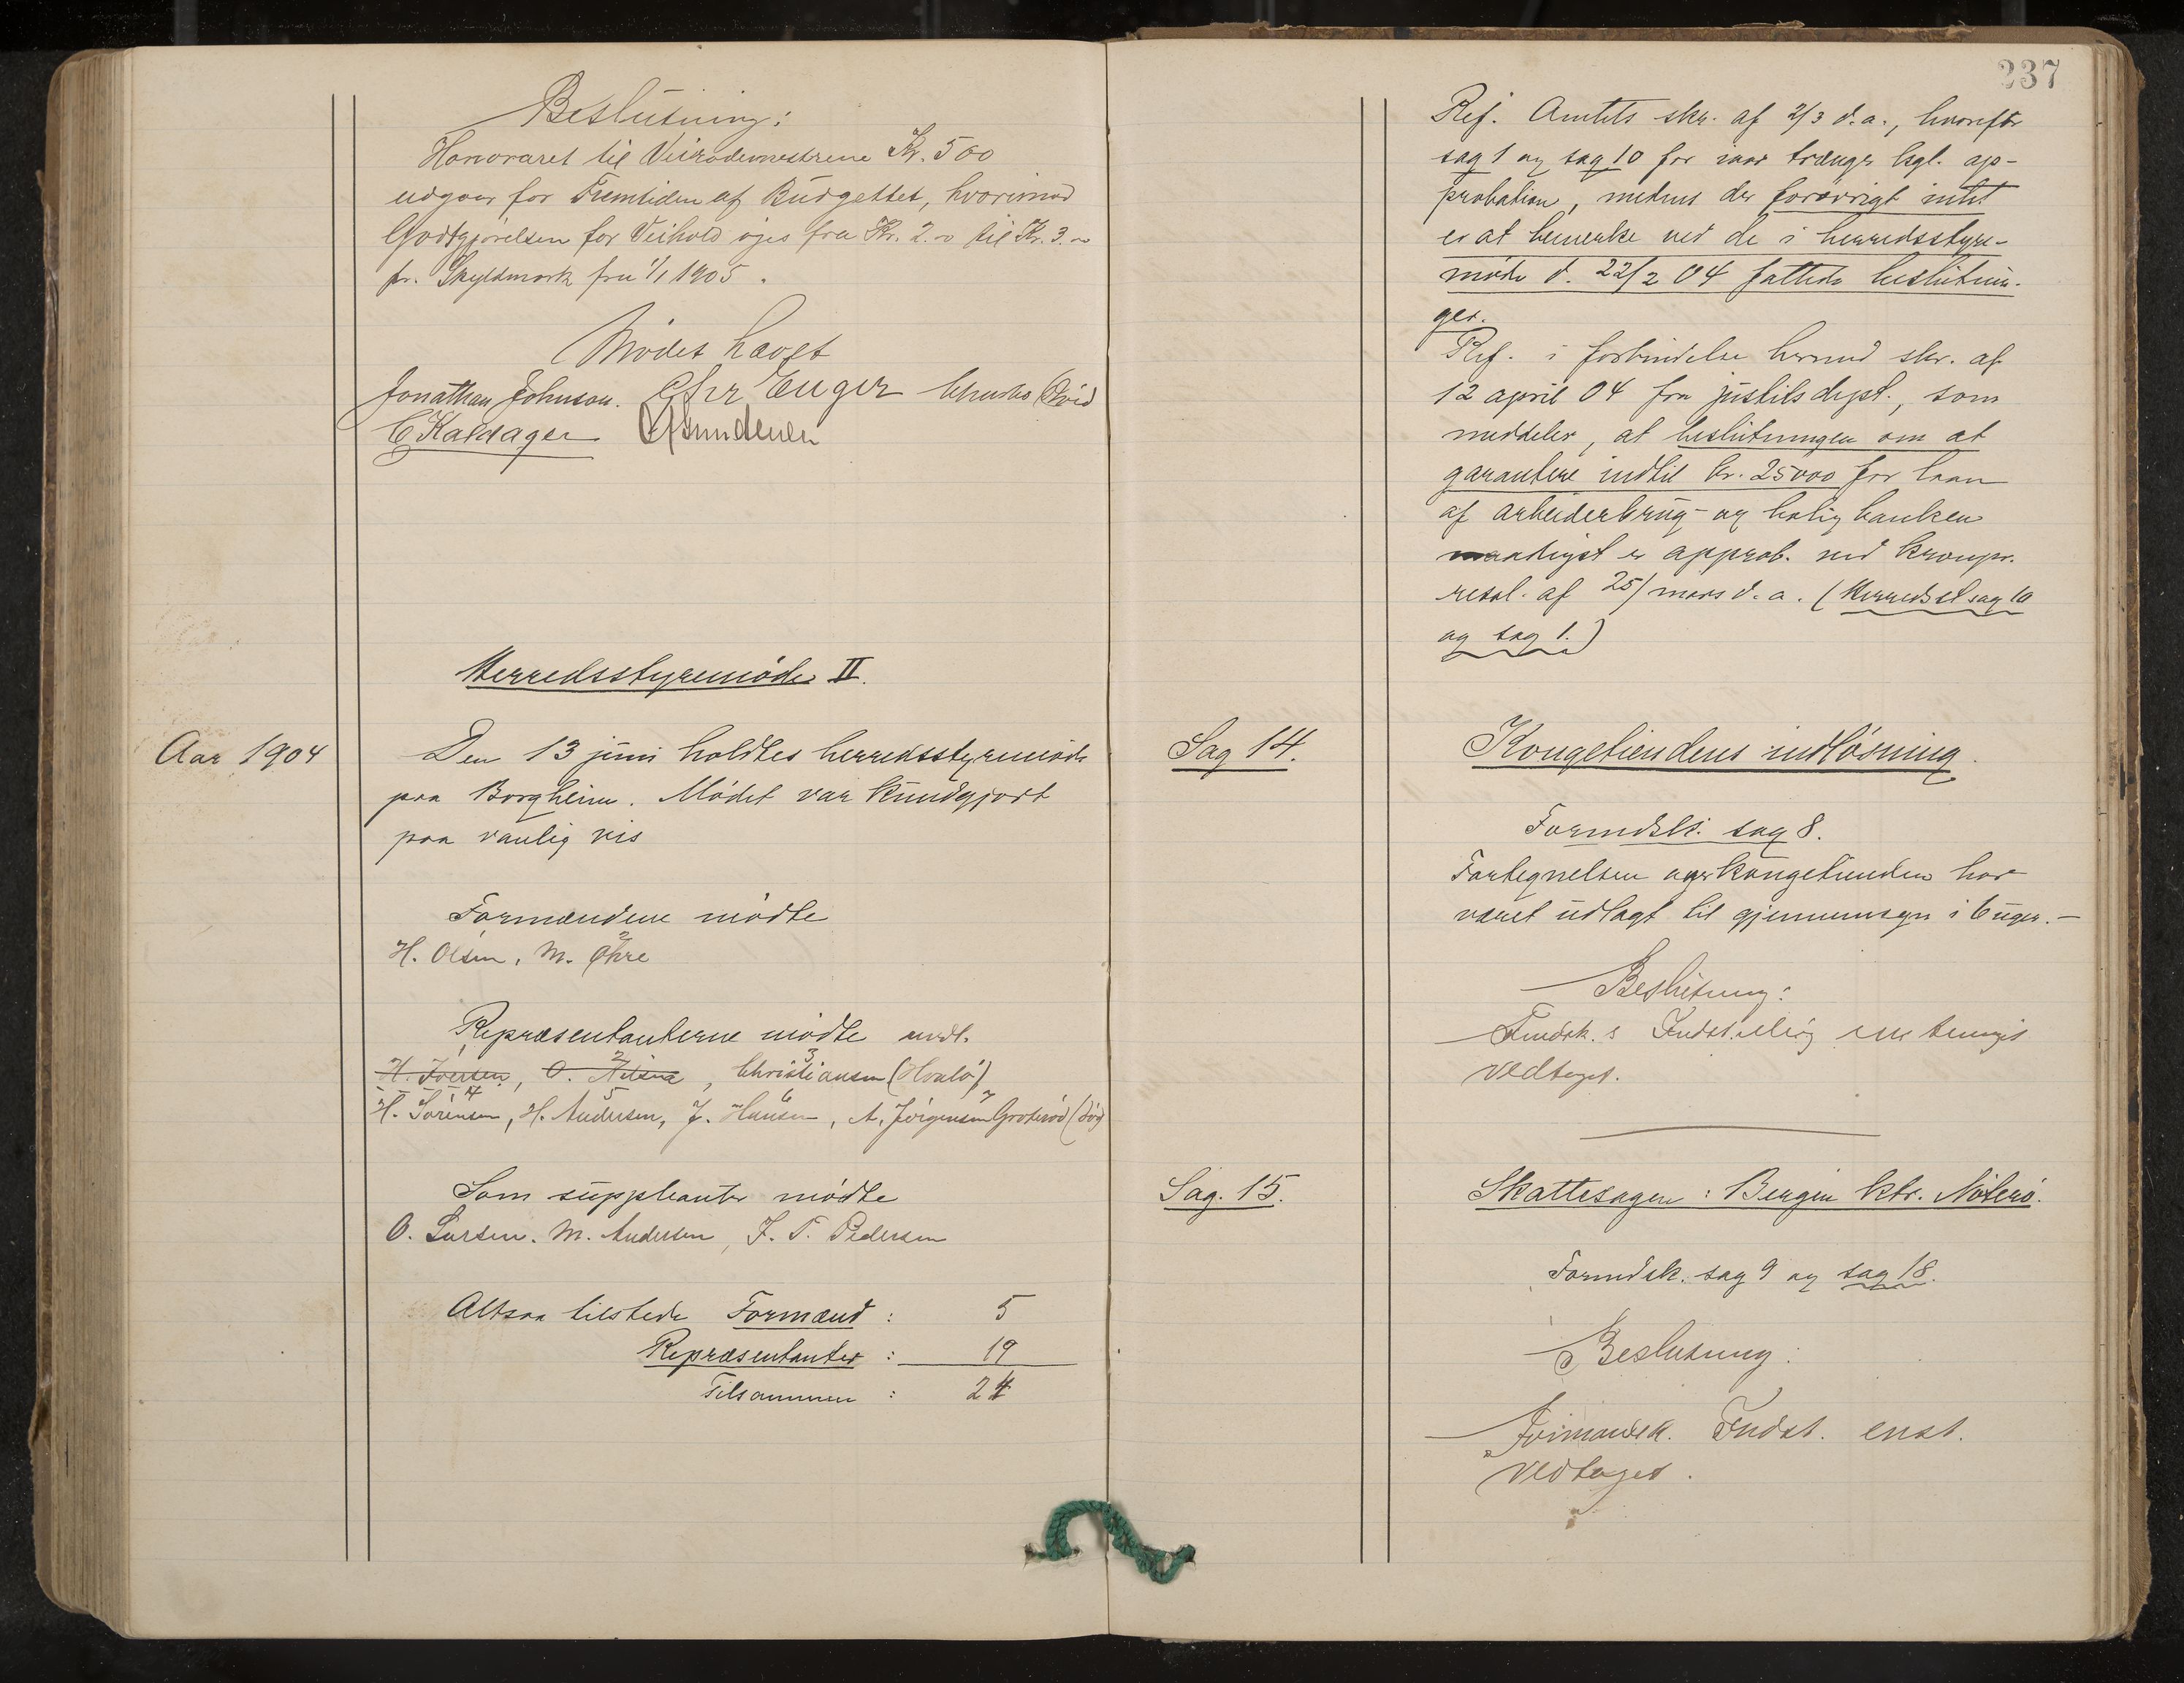 Beslutning:
Honoraret til Veirodemestrene Kr. 500
udgaar for Fremtiden af Budgettet, hvorimod
Godtgjörelsen for Veihold öges fra Kr. 2.- til Kr. 3.-
pr. Skyldmark fra 1/1 1905.
Mödet hævet
Jonathan Johnson. Chr Enger Qvist
C Kaldager
Herredsstyremöde II.
Aar 1904
Den 13 juni holdtes herredsstyremöde
paa Borgheim. Mödet var kundgjort
paa vanlig vis
Formændene mödte
H. Olsen, M. Öhre
Repræsentanterne mödte undt.
H. Iversen, O. Nilsen, Christiansen (Hvalö)
H. Sörensen, H. Andersen, J. Hansen, A. Jörgensen Groteröd (död)
Som suppleanter mödte
O. Larsen. M. Andersen, J. T. Pedersen
Altsaa tilstede Formænd: 5
Repræsentanter: 19
Tilsammen: 24
237
Ref. Amtets skr. af 2/3 d.a., hvorefter
sag 1 og sag 10 for iaar trænger kgl. ap-
probation, medens der forövrigt intet
er at bemerke ved de i herredsstyre-
möde d. 22/2 04 fattede beslutnin-
ger.
Ref. i forbindelse hermed skr. af
12 april 04 fra justitsdept., som
meddeler, at beslutningen om at
garantere indtil kr. 25000 for laan
af arbeiderbrug- og boligbanken
naadigst er approb. ved kronpr.
resol. af 25/ mars d.a. (Herredsst sag 10
og sag 1.)
Sag 14.
Kongetiendens indlösning.
Formdsk. sag 8.
Fortegnelsen over kongetienden har
været udlagt til gjennemsyn i 6 uger.-
Beslutning:
Fmdsk.s Indstilling enstemmigt
vedtaget.
Sag. 15.
Skattesagen: Bergen ktr. Nöterö.
Formdsk. sag 9 og sag 18.
Beslutning:
Formandsk. Indst. enst.
vedtaget.